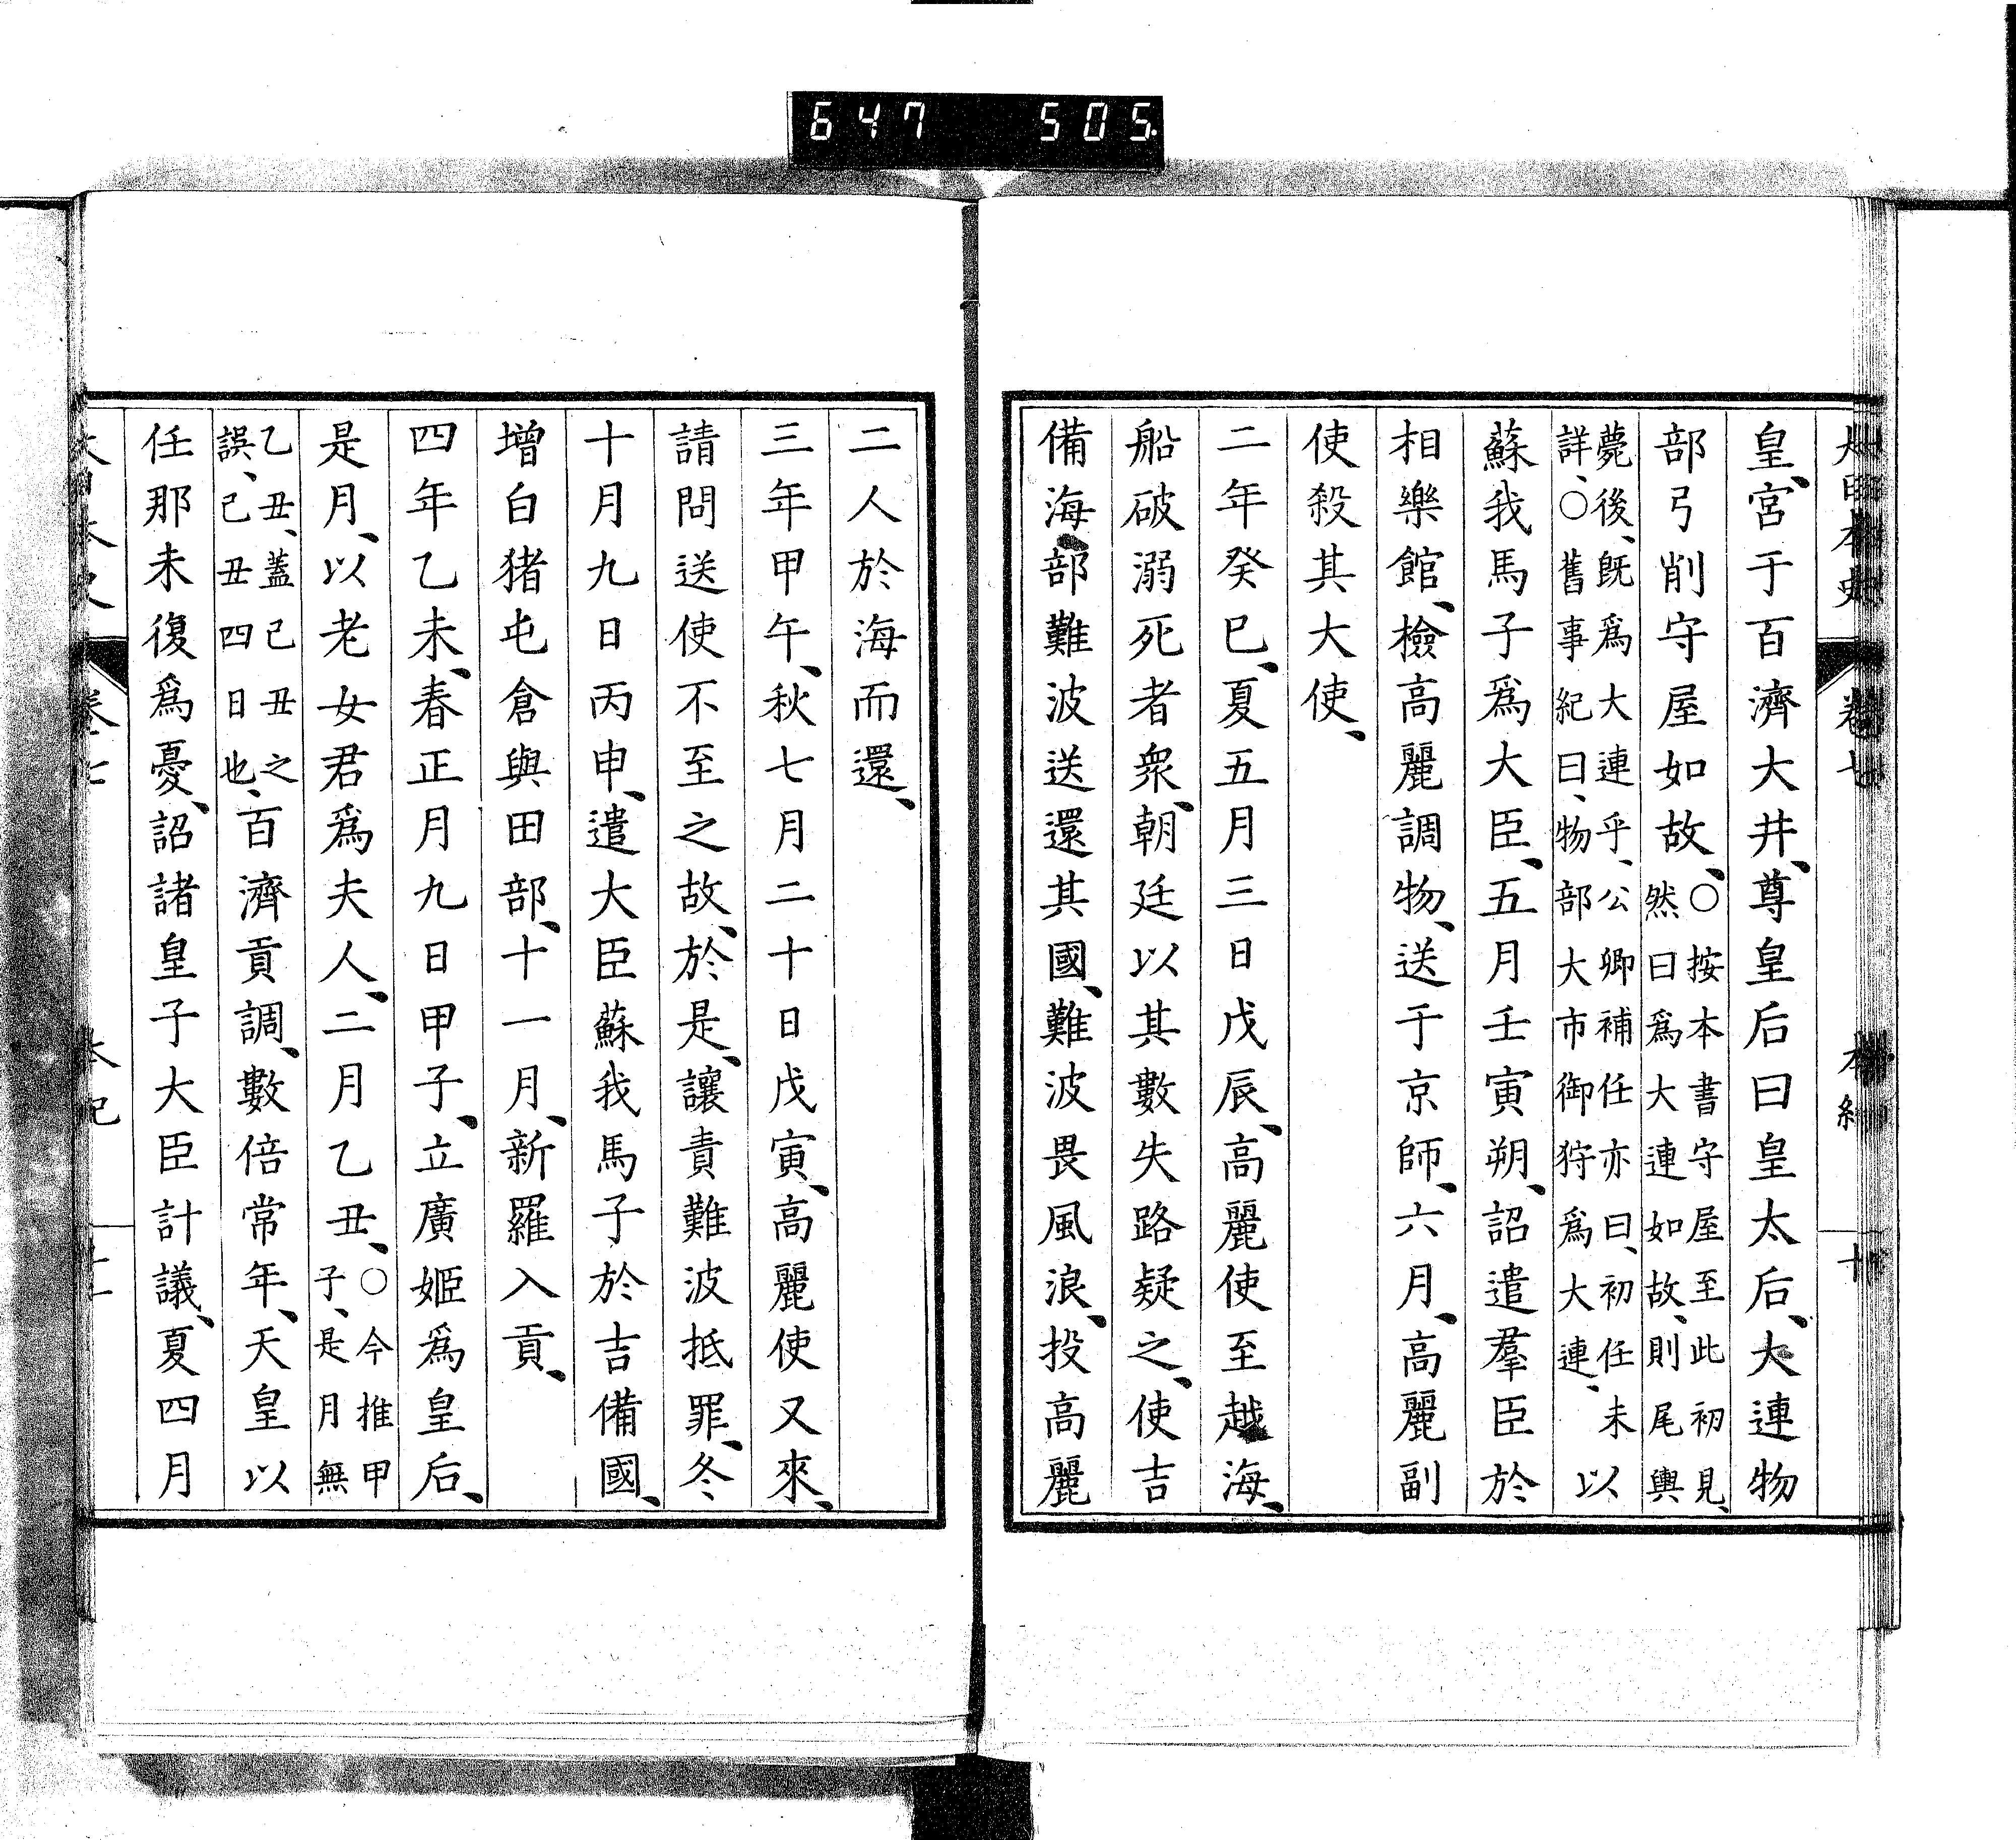 647 505
大日本史 卷七 本紀 十
皇、宮于百濟大井、尊皇后曰皇太后、大連物
部弓削守屋如故、○按本書守屋至此初見、然曰爲大連如故、則尾輿
薨後、既爲大連乎、公卿補任亦曰、初任未詳、○舊事紀曰、物部大市御狩爲大連、以
蘇我馬子爲大臣、五月壬寅朔、詔遣羣臣於
相樂館、檢高麗調物、送于京師、六月、高麗副
使殺其大使、
二年癸巳、夏五月三日戊辰、高麗使至越海、
船破溺死者衆、朝廷以其數失路疑之、使吉
備海部難波送還其國、難波畏風浪、投高麗
二人於海而還、
三年甲午、秋七月二十日戊寅、高麗使又來、
請問送使不至之故、於是、讓責難波抵罪、冬
十月九日丙申、遣大臣蘇我馬子於吉備國、
增白猪屯倉與田部、十一月、新羅入貢、
四年乙未、春正月九日甲子、立廣姬爲皇后、
是月、以老女君爲夫人、二月乙丑、○今推甲子、是月無
乙丑、蓋己丑之誤、己丑四日也、百濟貢調、數倍常年、天皇以
任那未復爲憂、詔諸皇子大臣計議、夏四月
大日本史 卷七 本紀